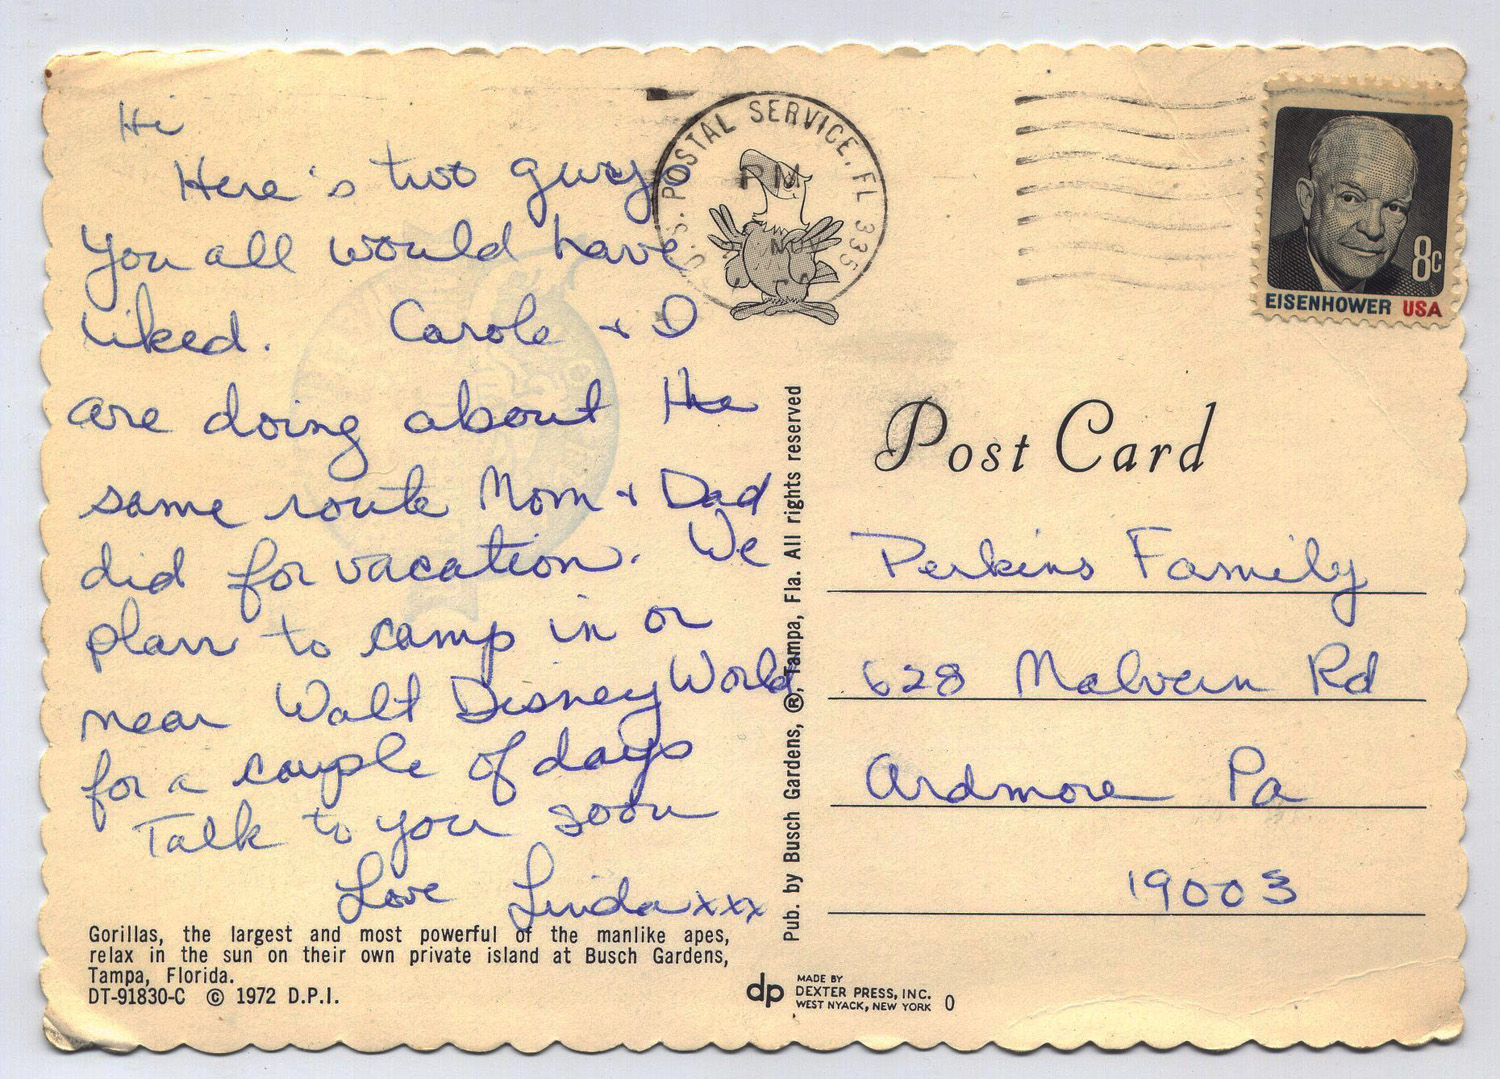 Hi
Here's two guys
you all would have
liked. Carole + I
are doing about the
same route Mom + Dad
did for vacation. We
plan to camp in or
near Walt Disney World
for a couple of days
Talk to you soon
Love Linda xxx
Gorillas, the largest and most powerful of the manlike apes,
relax in the sun on their own private island at Busch Gardens,
Tampa, Florida.
DT-91830-C © 1972 D.P.I.
Pub. by Busch Gardens, ®, Tampa, Fla. All rights reserved
dp
MADE BY
DEXTER PRESS, INC.
WEST NYACK, NEW YORK 0
U.S. POSTAL SERVICE, FL 335
PM
8c
EISENHOWER USA
Post Card
Perkins Family
628 Malvern Rd
Ardmore Pa
19003